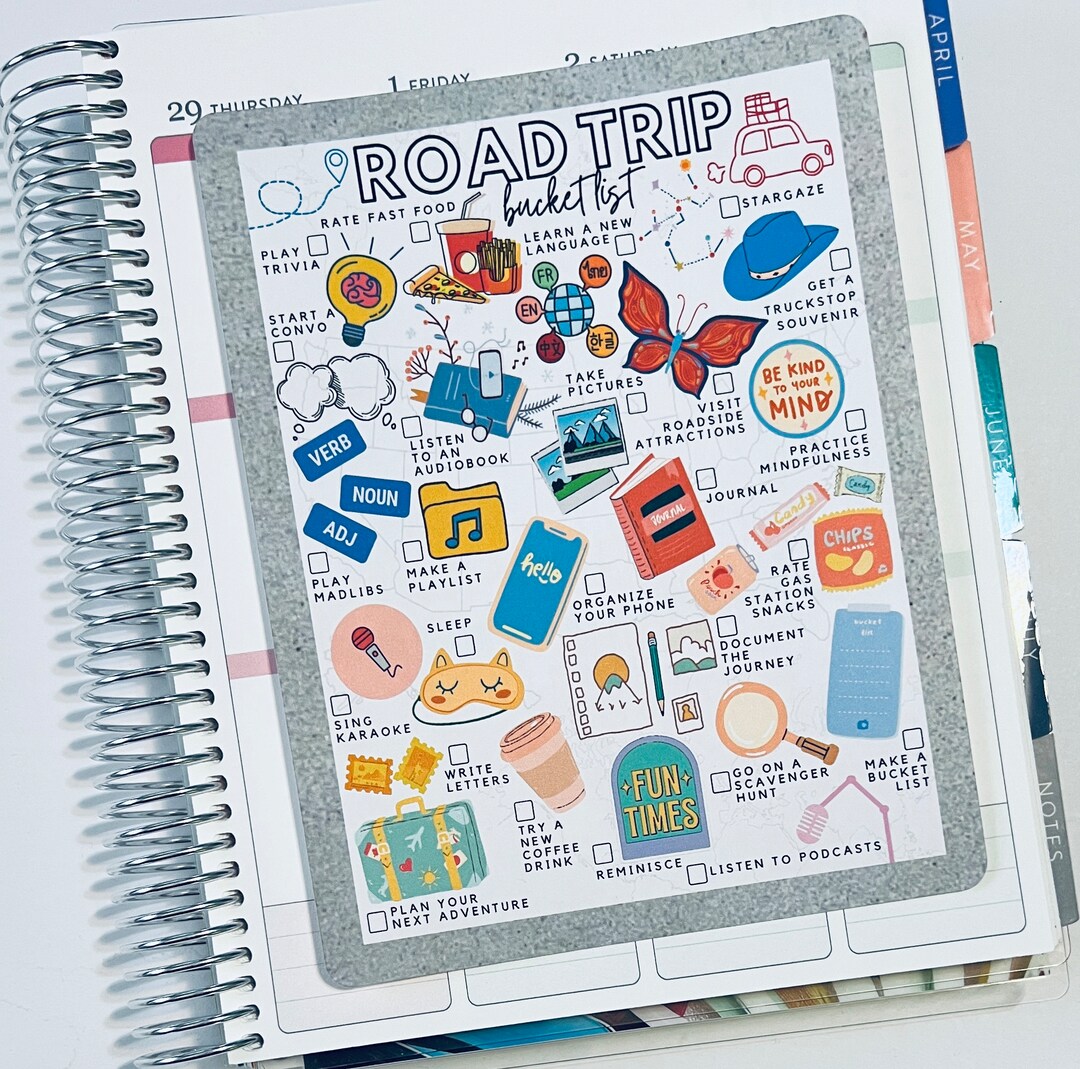 29 THURSDAY
1 FRIDAY
2 SATURDAY
APRIL
MAY
JUNE
NOTES
ROAD TRIP
bucket list
RATE FAST FOOD
PLAY
TRIVIA
LEARN A NEW
LANGUAGE
STARGAZE
FR
ไทย
EN
中文
한글
START A
CONVO
GET A
TRUCKSTOP
SOUVENIR
TAKE
PICTURES
VISIT
ROADSIDE
ATTRACTIONS
BE KIND
TO YOUR
MIND
PRACTICE
MINDFULNESS
LISTEN
TO AN
AUDIOBOOK
VERB
NOUN
ADJ
PLAY
MADLIBS
MAKE A
PLAYLIST
hello
ORGANIZE
YOUR PHONE
JOURNAL
JOURNAL
Candy
Candy
CHIPS
CLASSIC
Peach
RATE
GAS
STATION
SNACKS
SLEEP
DOCUMENT
THE
JOURNEY
bucket
list
SING
KARAOKE
WRITE
LETTERS
TRY A
NEW
COFFEE
DRINK
FUN
TIMES
REMINISCE
GO ON A
SCAVENGER
HUNT
MAKE A
BUCKET
LIST
LISTEN TO PODCASTS
PLAN YOUR
NEXT ADVENTURE